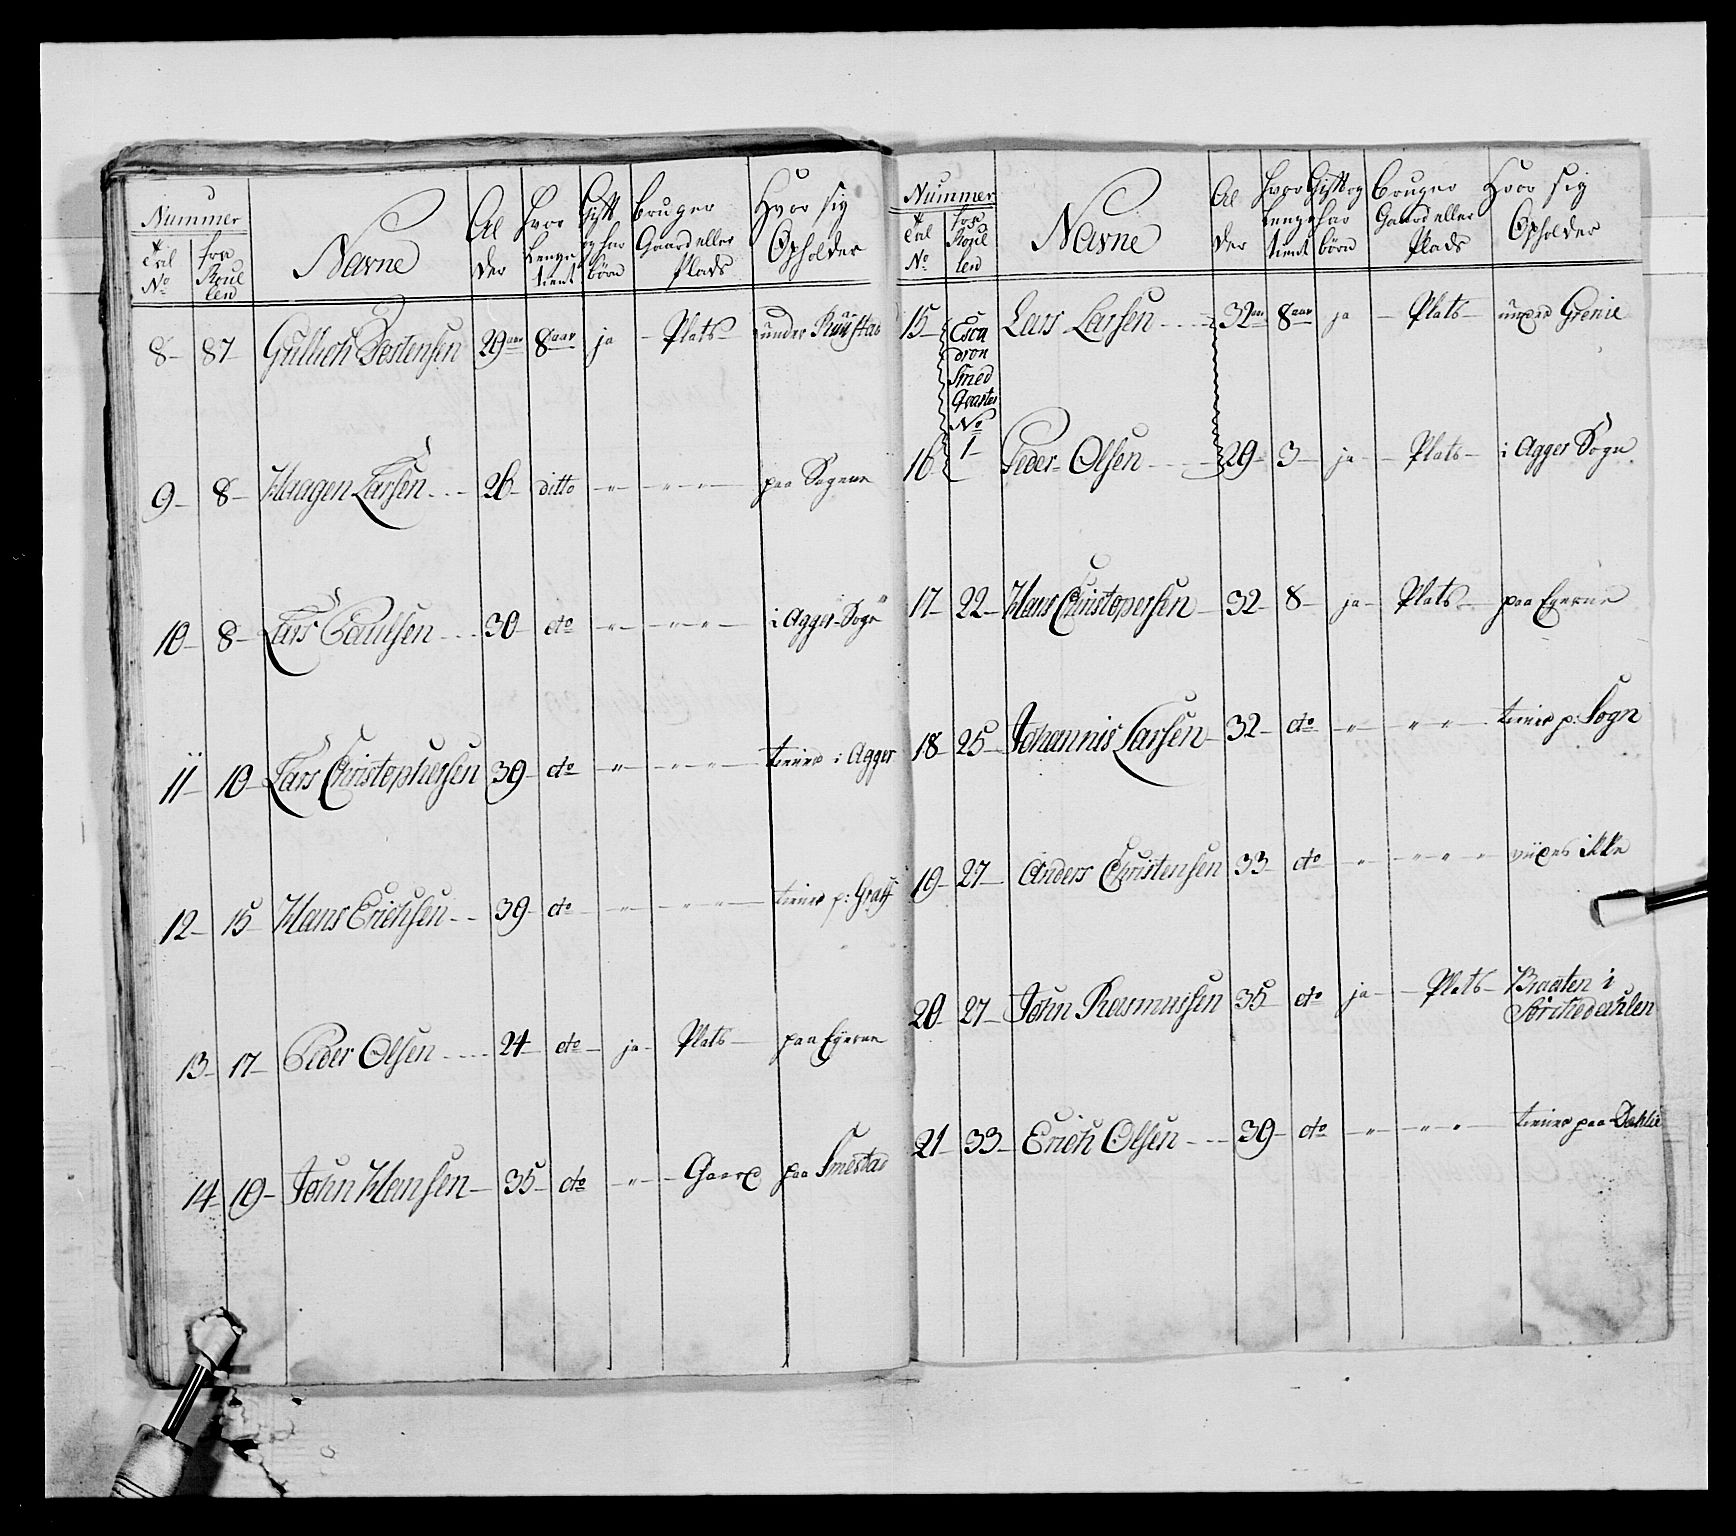 Nummer
Til No
for Roullen
Navne
Alder
Hvor Lenge tient
Gift og har børn
bruger Gaard eller Plads
Hvor sig Opholder
8 - 87 Gullich Testensen 29 aar 8 aar ja - Plats - under
9 - 8 - Haagen Larsen - - 26 - ditto - " - " - " - paa Sognene
10 - 8 - Lars Paulsen - - 30 - do - " - " - " - i Agger Sogn
11 - 10 - Lars Christophersen 39 - do - " - " - " - tiener i Agger
12 - 15 - Hans Erichsen - - 39 - do - " - " - " - tiener p:
13 - 17 - Peder Olsen - - 24 - do - ja - Plats - paa Egerne
14 - 19 - John Hansen - 35 - do - " - Gaard paa Smestad
Nummer
Til No
for Roullen
Navne
Alder
Hvor Lenge tient
Gift og har børn
bruger Gaard eller Plads
Hvor sig Opholder
15 - Lars Larsen - - 32 aar 8 aar ja - Plats - under Grenie
Esca
dron
Smed
No
1 -
16 Peder Olsen - - 29 - 3 - ja - Plats - i Agger Sogn
17 - 22 - Hans Christopersen - 32 - 8 - ja - Plats - paa Egerne
18 - 25 - Johannis Larsen - 32 - do - " - " " - tiener p: Sogn
19 - 27 - Anders Christensen 33 - do - " - " - " - " viides ikke
20 - 27 - John Rasmussen 35 - do - ja - Plats - Braaten i
Sørchedahlen
21 - 33 - Erich Olsen - - 39 - do - " - " - " - tiener paa Dæhlie